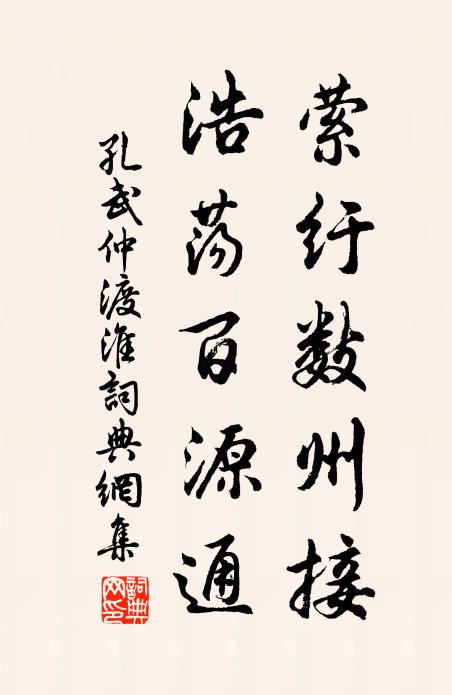 萦纡数州接
浩荡百源通
孔武仲渡淮詞典網集
詞典網印